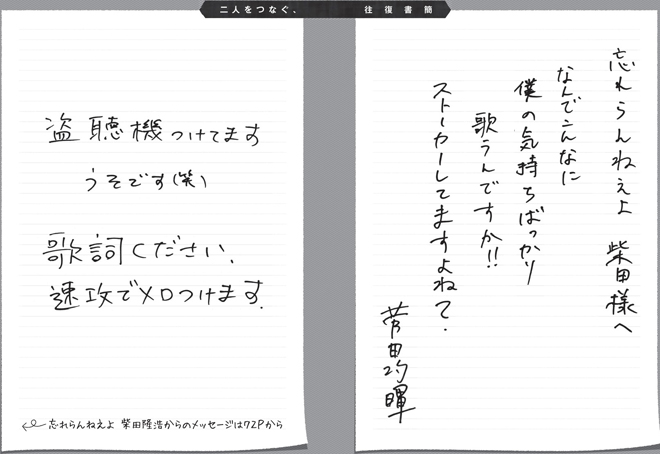 二人をつなぐ、往復書簡
忘れらんねえよ 柴田様へ
なんでこんなに
僕の気持ちばっかり
歌うんですか!!
ストーカーしてますよねて.
菅田将暉
盗聴機つけてます
うそです(笑)
歌詞ください.
速攻でメロつけます.
忘れらんねえよ 柴田隆浩からのメッセージは72Pから